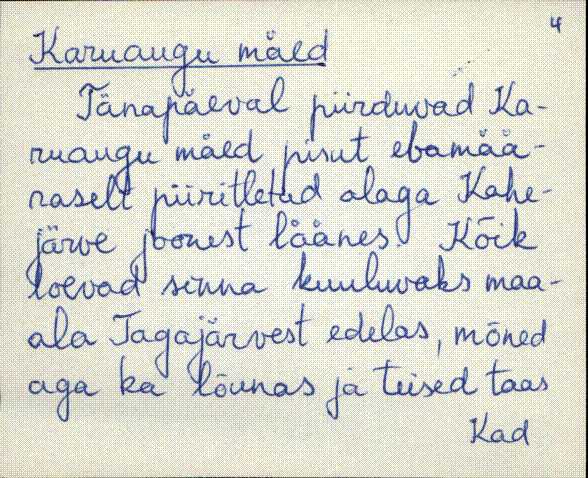 4
Karuaugu mäed
Tänapäeval piirduvad Ka-
ruaugu mäed pisut ebamää-
raselt piiritletud alaga Kahe-
järve joonest läänes. Kõik
loevad sinna kuuluvaks maa-
ala Tagajärvest edelas, mõned
aga ka lõunas ja teised taas
Kad